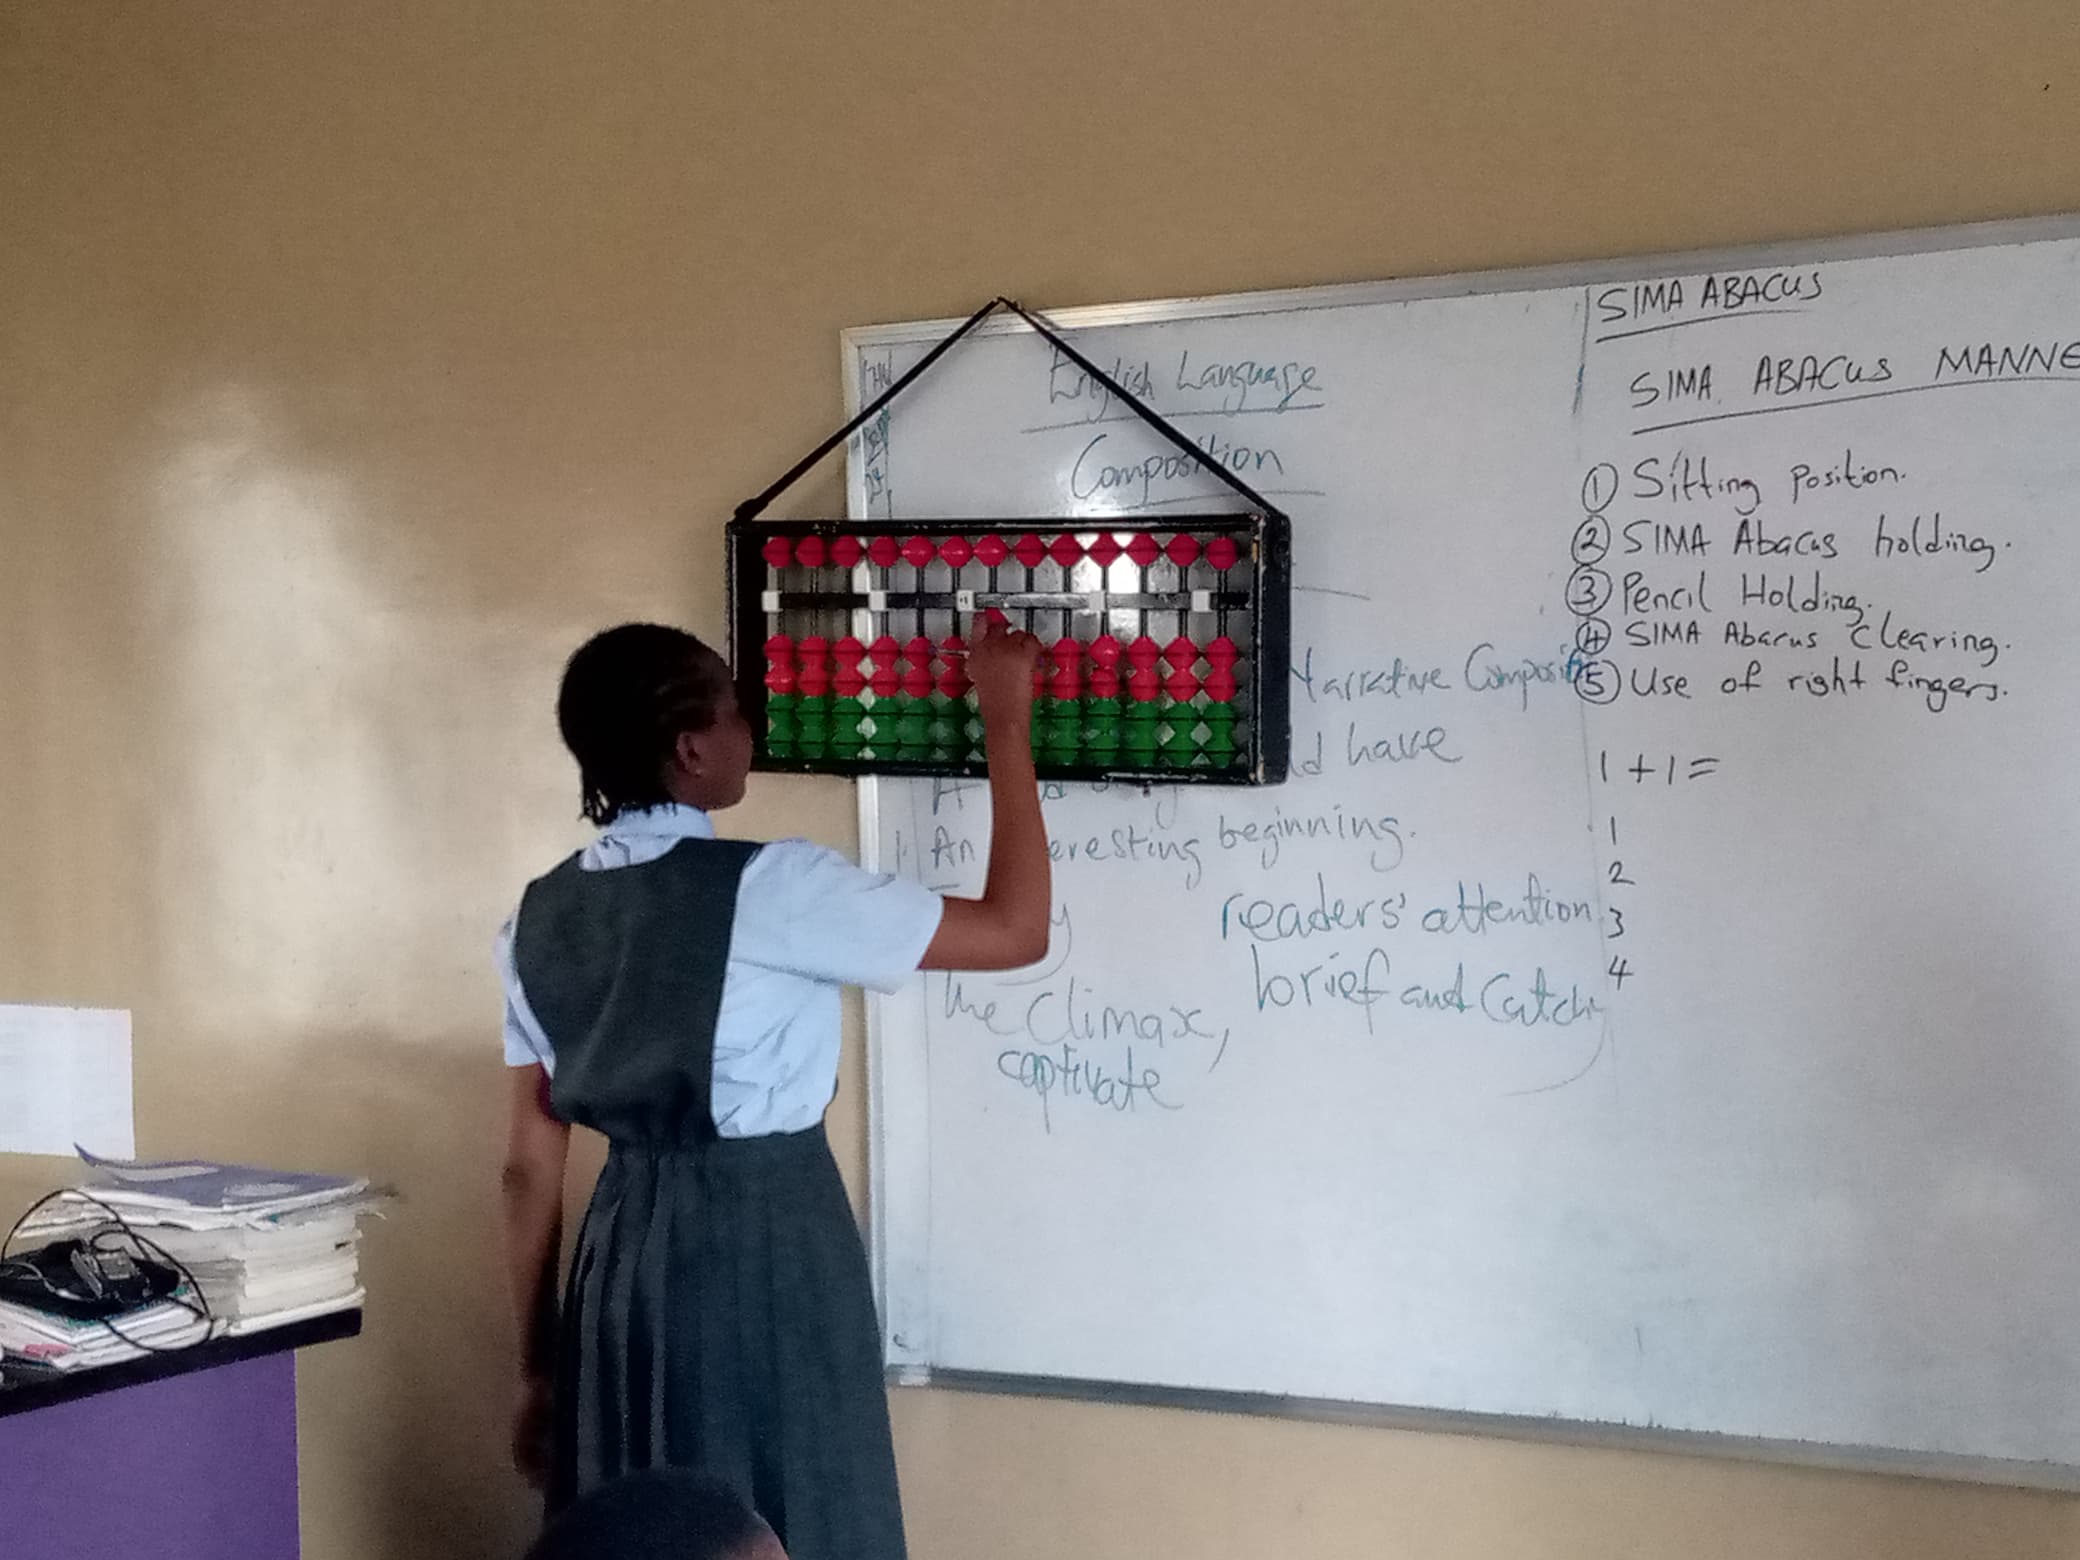 English Language
Composition
Narrative
have
An eresting beginning.
readers' attention
brief and
the climax,
captivate
SIMA ABACUS
SIMA ABACUS MANNE
① Sitting position.
② SIMA Abacus holding.
③ Pencil Holding.
④ SIMA Abacus Clearing.
⑤ Use of right fingers.
1 + 1 =
1
2
3
4